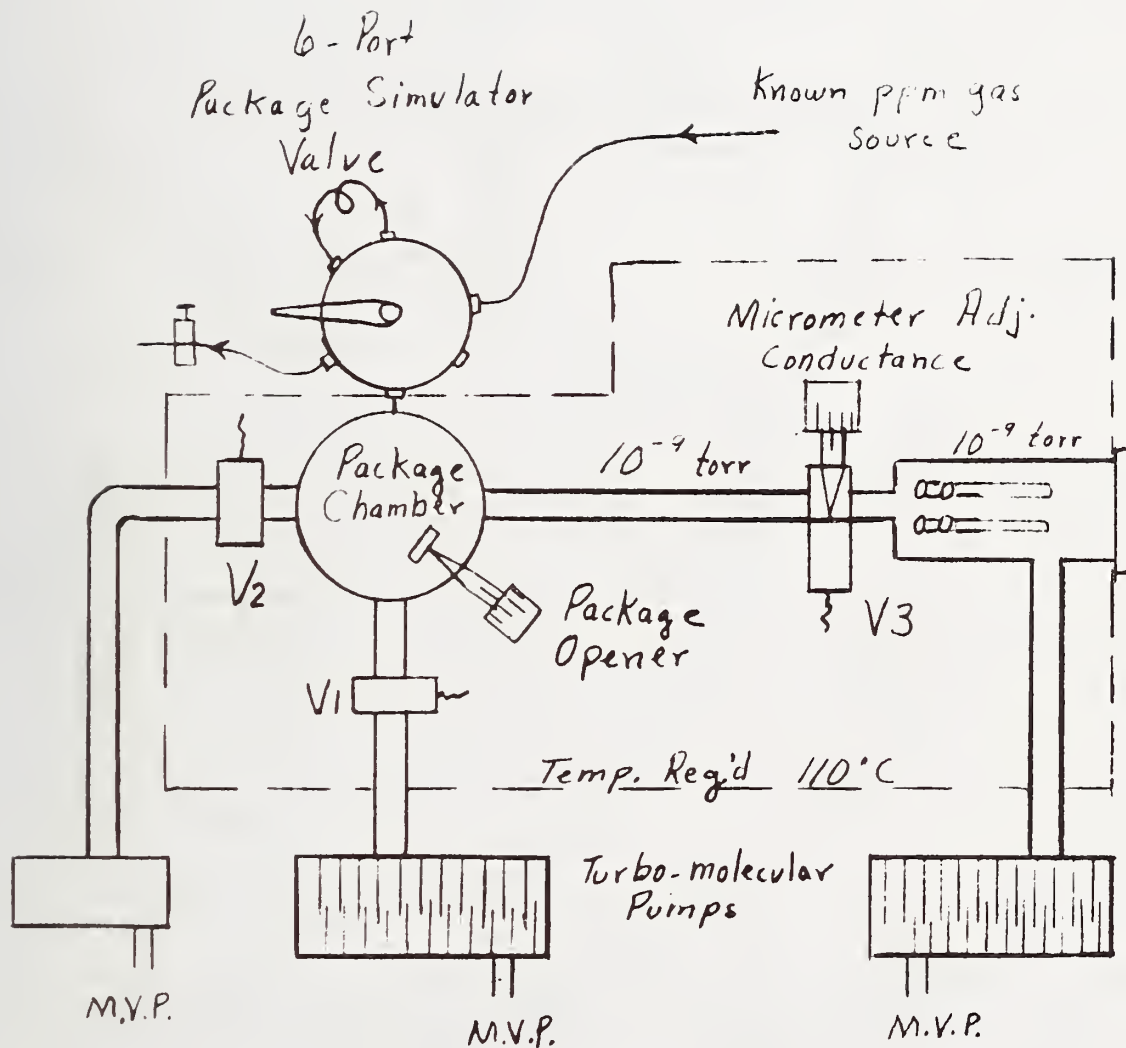 6-Port
Package Simulator
Valve
Known ppm gas
Source
Micrometer Adj.
Conductance
10⁻⁹ torr
10⁻⁹ torr
Package
Chamber
V2
V3
Package
Opener
V1
Temp. Reg'd 110°C
Turbo-molecular
Pumps
M.V.P.
M.V.P.
M.V.P.